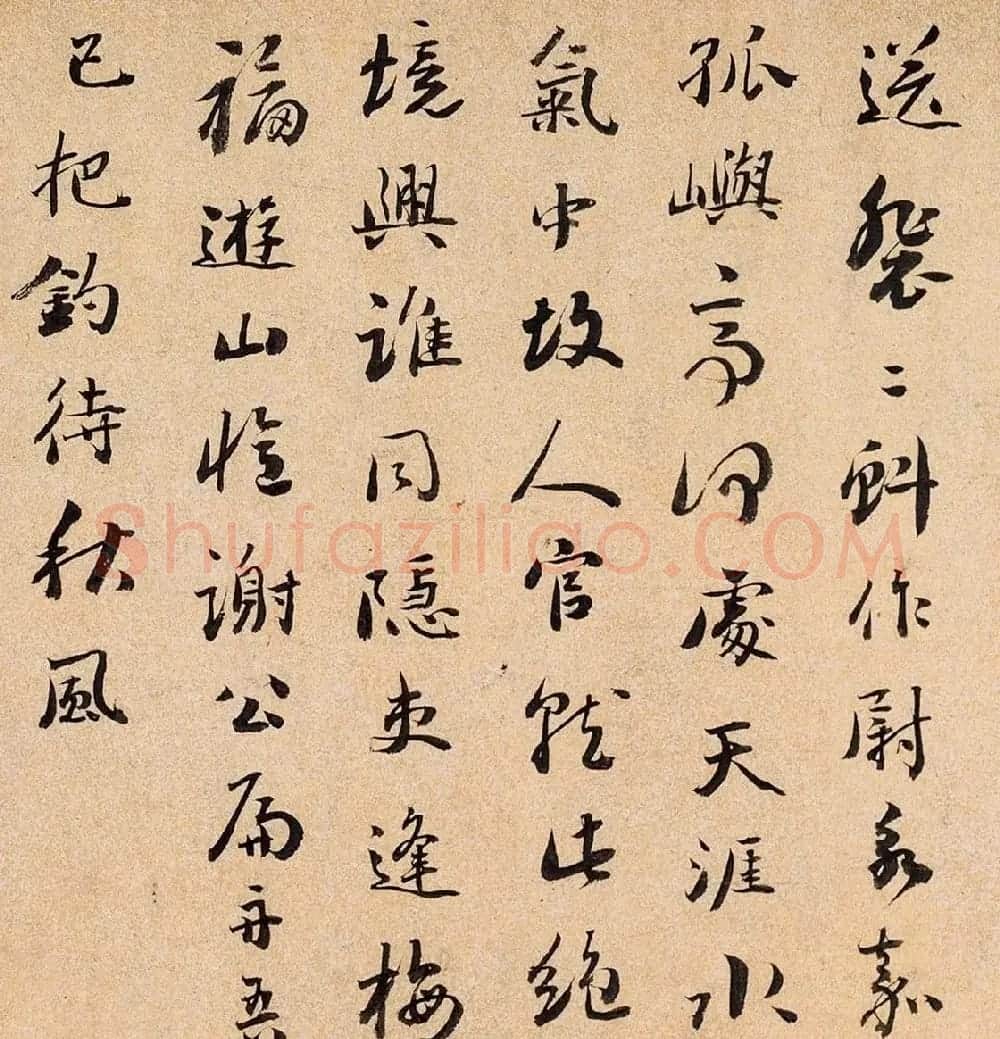 送裴二虯作尉永嘉
孤嶼亭何處天涯水
氣中故人官就此絕
境興誰同隱吏逢梅
福遊山憶謝公扁舟吾
已把釣待秋風
Shufaziliao.COM